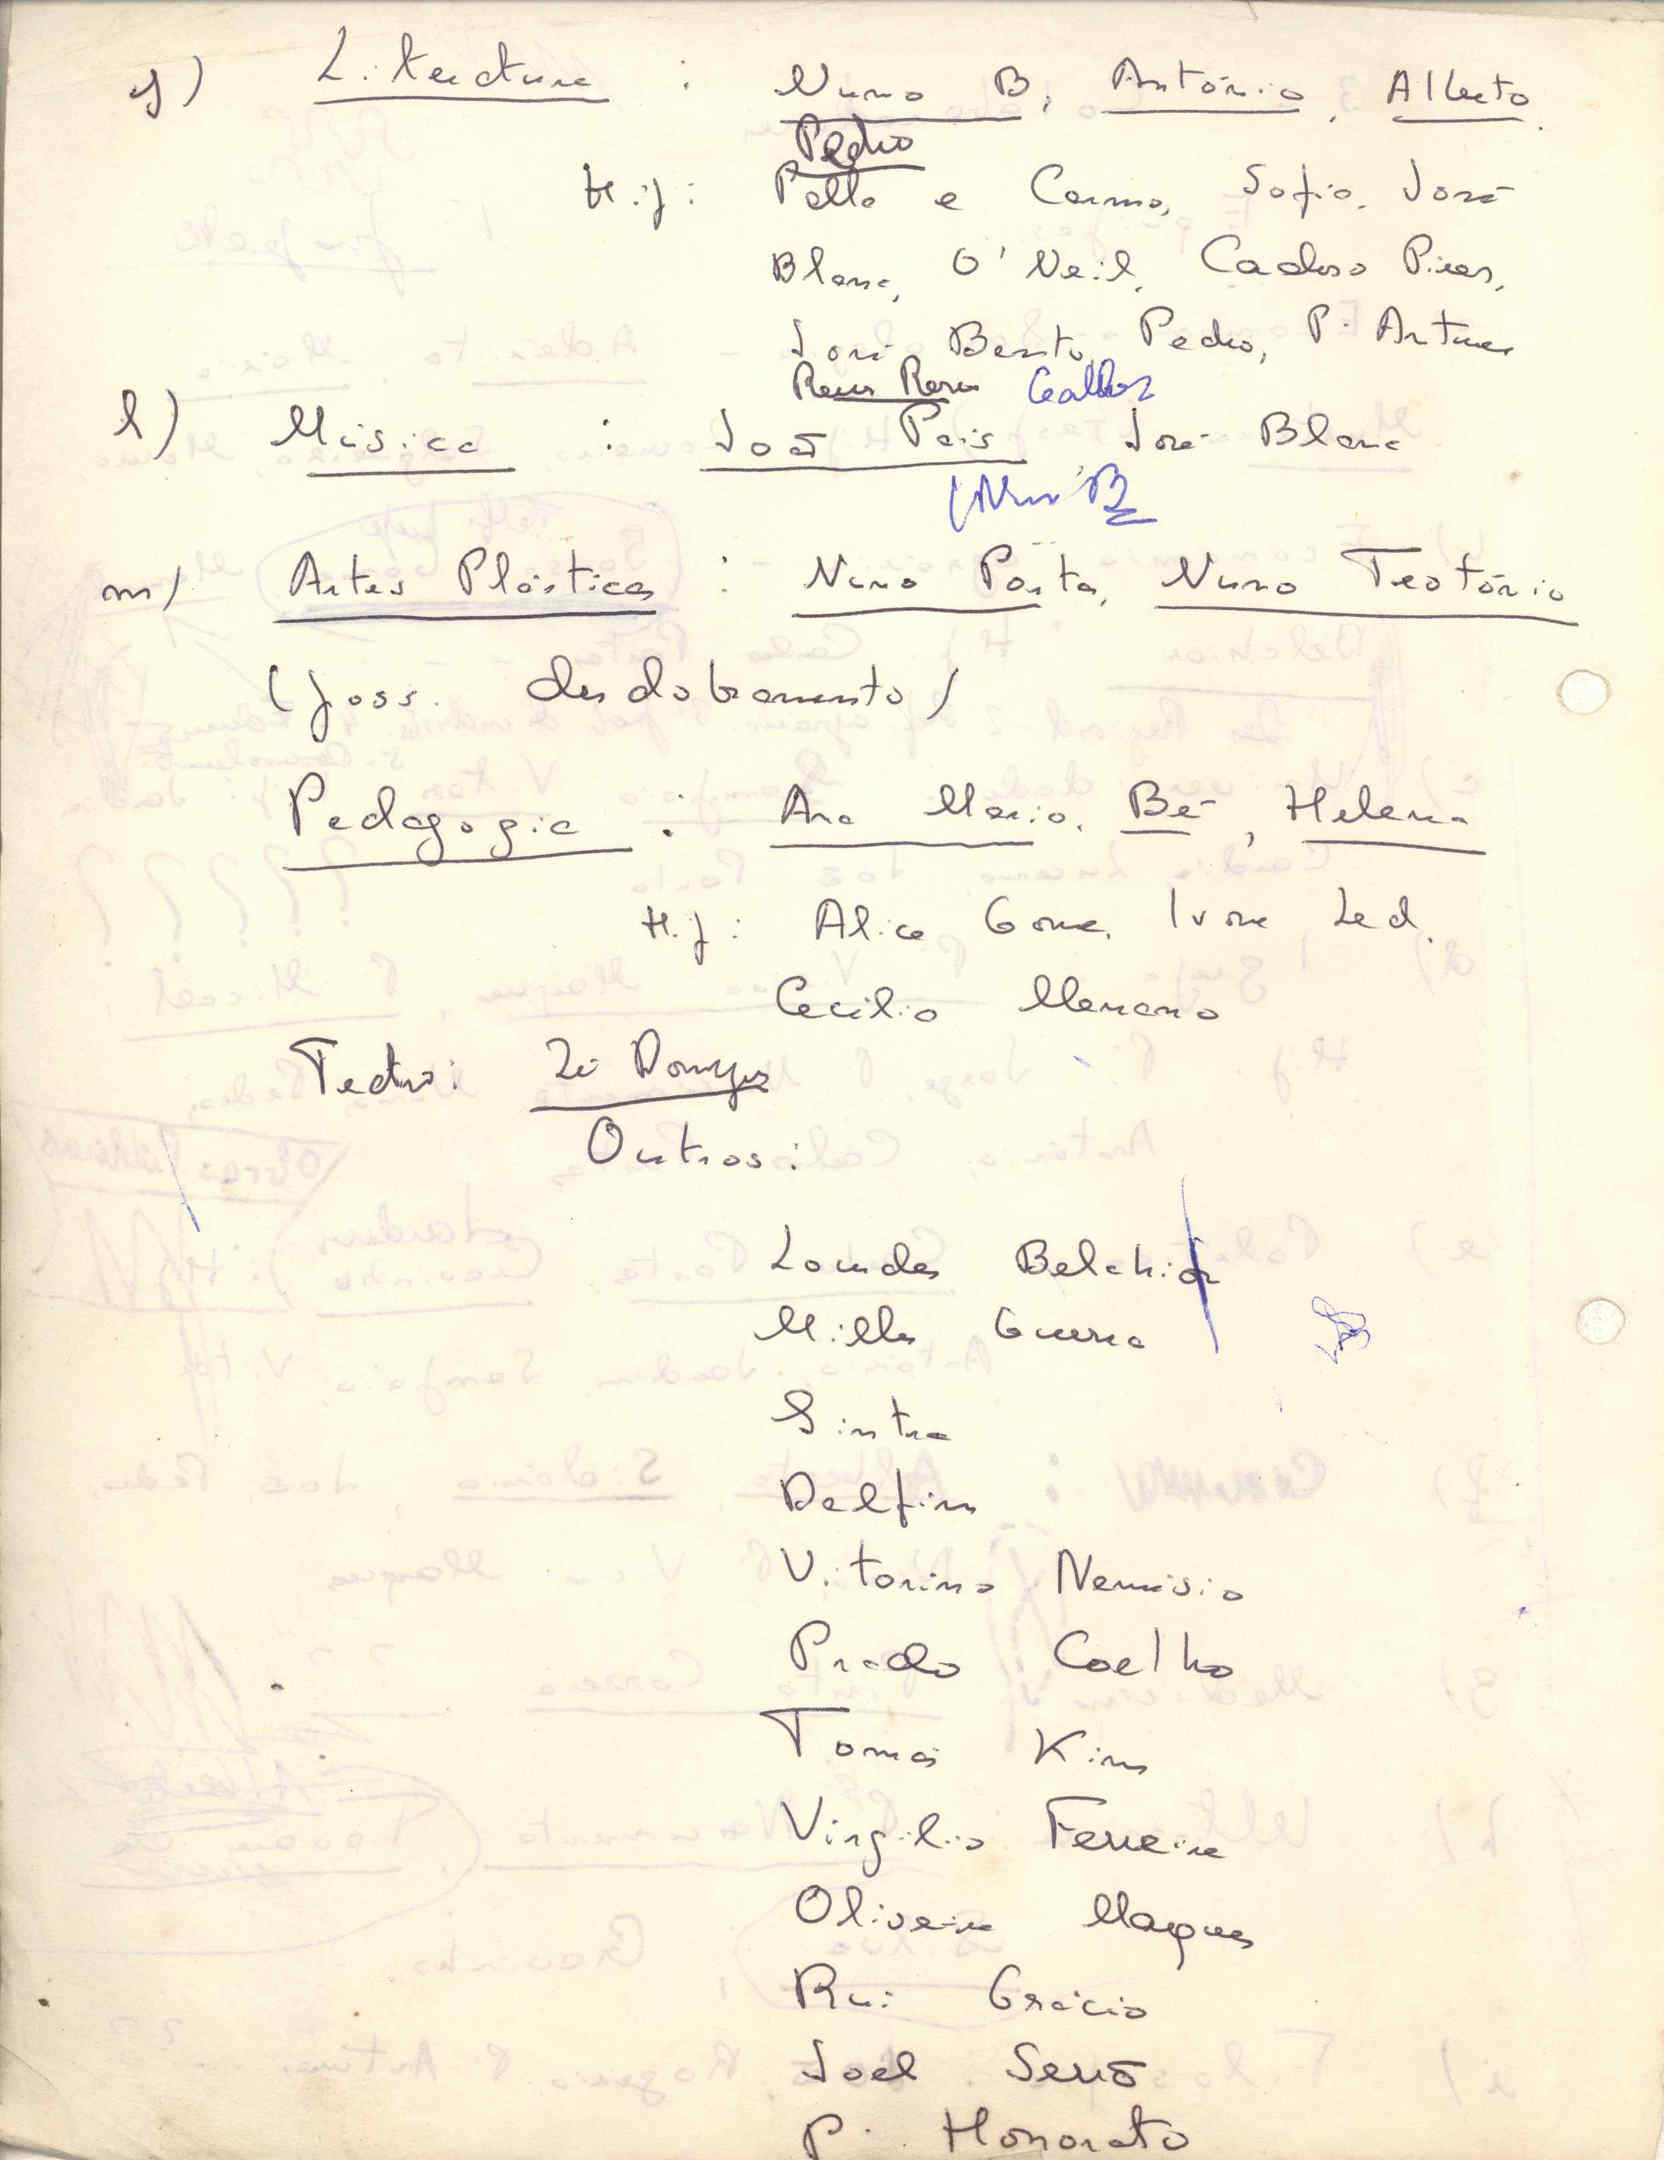 j) Literatura : Nuno B, António, Alberto,
Pedro
H.j: Pello e Carmo, Sofia, José
Blanc, O'Neil, Cardoso Pires,
José Bento, Pedro, P. Artur
l) Música : João Pais José Blanc
(Nuno B
m) Artes Plásticas : Nuno Porta, Nuno Teotónio
(poss. desdobramento)
Pedagogia : Ana Maria, Bé, Helena
H.j: Alice Gome, Ivone Led.
Cecilia Menano
Teatro: Zé Domgos
Outros:
Lourdes Belchior
Miller Guerra
Sintra
Delfim
Vitorino Nemésio
Prado Coelho
Tomás Kim
Virgílio Ferreira
Oliveira Marques
Rui Grácio
Joel Serrão
P. Honorato